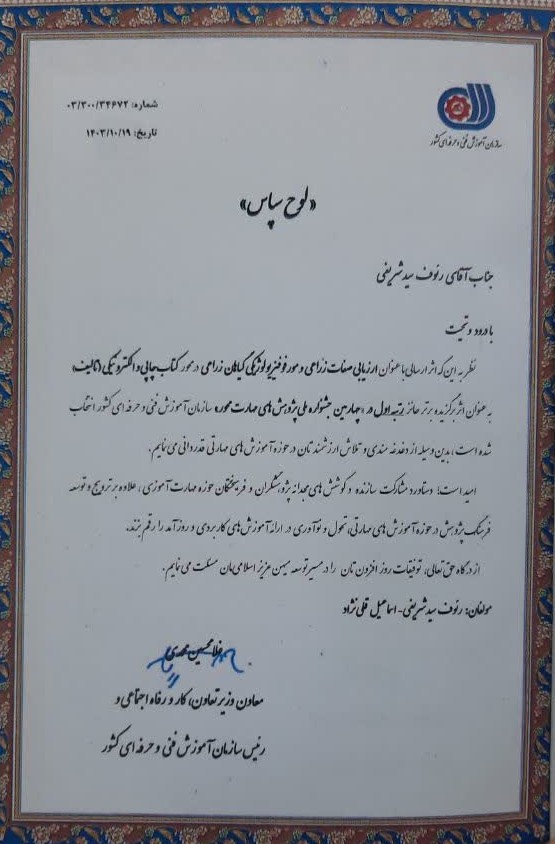 سازمان آموزش فنی و حرفه ای کشور
شماره: ۰۳/۳۰۰/۳۴۶۷۲
تاریخ: ۱۴۰۳/۱۰/۱۹
«لوح سپاس»
جناب آقای رئوف سید شریفی
با درود و تحیت
نظر به این که اثر ارسالی با عنوان ارزیابی صفات زراعی و مورفوفیزیولوژیکی گیاهان زراعی در محور کتاب چاپی و الکترونیکی (تالیف)
به عنوان اثر برگزیده برتر حائز رتبه اول در «چهارمین جشنواره ملی پژوهش های مهارت محور» سازمان آموزش فنی و حرفه ای کشور انتخاب
شده است، بدین وسیله از دغدغه مندی و تلاش ارزشمندتان در حوزه آموزش های مهارتی قدردانی می نمایم.
امید است؛ دستاورد مشارکت سازنده و کوشش های مجدانه پژوهشگران و فرهیختگان حوزه مهارت آموزی، علاوه بر ترویج و توسعه
فرهنگ پژوهش در حوزه آموزش های مهارتی، تحول و نوآوری در ارائه آموزش های کاربردی و روزآمد را رقم بزند.
از درگاه حق تعالی، توفیقات روز افزون تان را در مسیر توسعه میهن عزیز اسلامی مان مسئلت می نمایم.
مولفان: رئوف سید شریفی - اسماعیل قلی نژاد
غلامحسین محمدی
معاون وزیر تعاون، کار و رفاه اجتماعی و
رئیس سازمان آموزش فنی و حرفه ای کشور